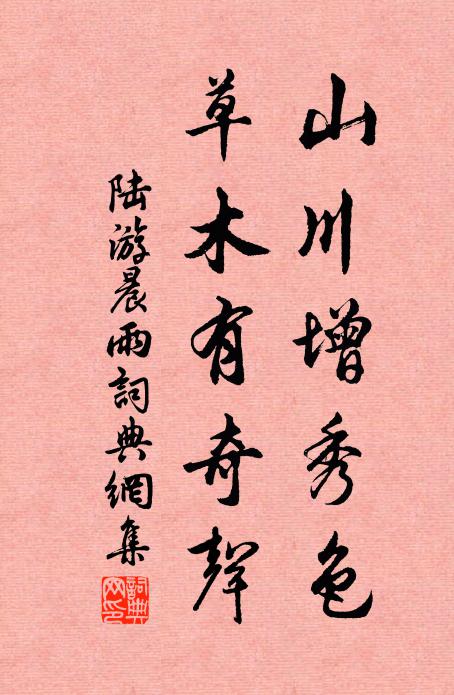 山川增秀色
草木有奇聲
陆游晨雨詞典網集
詞典网印